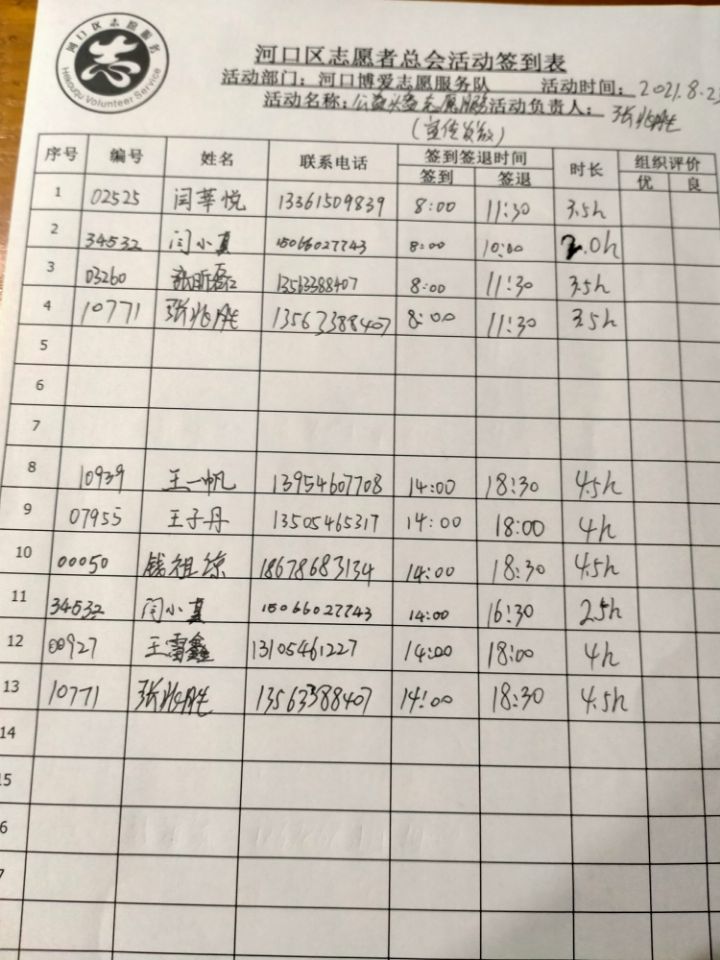 河口区志愿服务
志
Hekouqu Volunteer Service
河口区志愿者总会活动签到表
活动部门：河口博爱志愿服务队 活动时间：2021.8.2
活动名称：公益 志愿服务 活动负责人：张兆胜
（宣传发放）
序号 编号 姓名 联系电话 签到签退时间 时长 组织评价
签到 签退 优 良
1 02525 闫華悦 13361509839 8:00 11:30 3.5h
2 34532 闫小真 15066027743 8:00 10:00 2.0h
3 03260 张昕磊 13563388407 8:00 11:30 3.5h
4 10771 张兆胜 13563388407 8:00 11:30 3.5h
5
6
7
8 10939 王一帆 13954607708 14:00 18:30 4.5h
9 07955 王子丹 13505465317 14:00 18:00 4h
10 00050 钱祖琼 18678683134 14:00 18:30 4.5h
11 34532 闫小真 15066027743 14:00 16:30 2.5h
12 00927 王雪鑫 13105461227 14:00 18:00 4h
13 10771 张兆胜 13563388407 14:00 18:30 4.5h
14
15
6
7